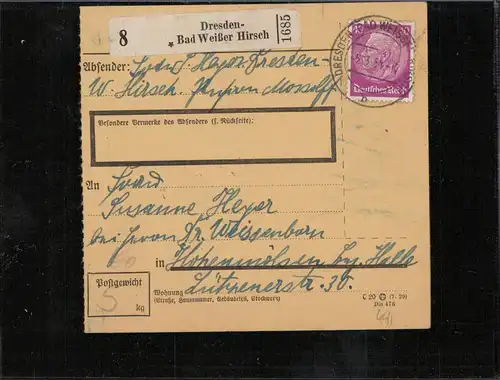 8
Dresden-
Bad Weißer Hirsch
1685
Absender:
W. Hirsch.
DRESDEN-BAD WEISSER
Deutsches Reich
Besondere Vermerke des Absenders (s. Rückseite):
An Frau
Susanne Heyer
bei Herrn Dr. Weissenborn
in Hohenmölsen bez. Halle
Lützenerstr. 30.
Postgewicht
5
kg
Wohnung
(Straße, Hausnummer, Gebäudeteil, Stockwerk)
C 20
Din 476